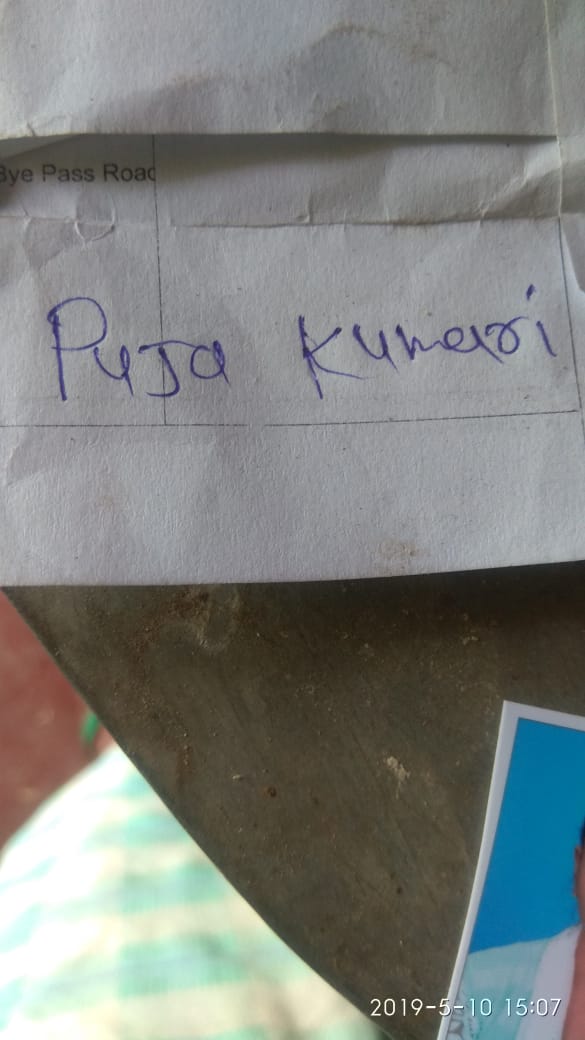 Bye Pass Road
Puja Kumari
2019-5-10 15:07